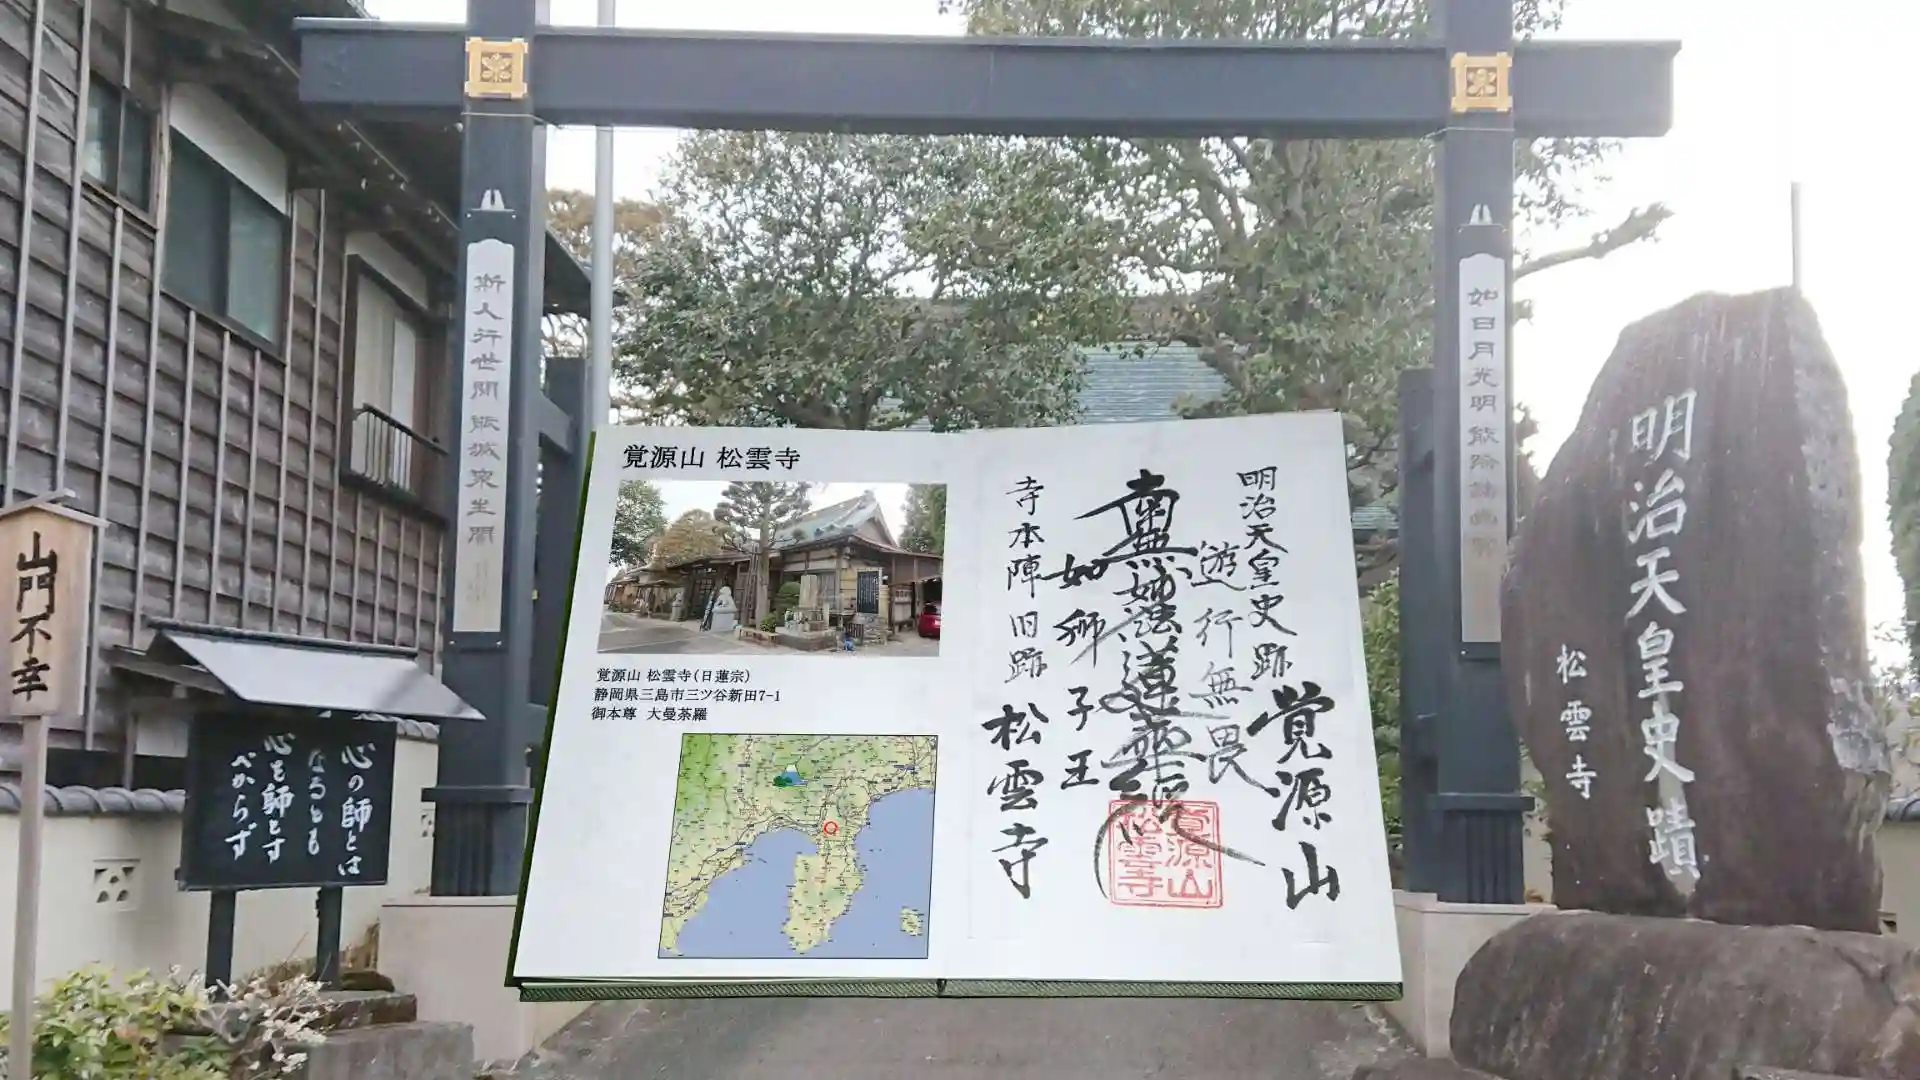 山門不幸
心の師とは
なるとも
心を師とす
べからず
斯人行世間能滅衆生闇
如日月光明能除諸幽冥
明治天皇史蹟
松雲寺
覚源山 松雲寺
覚源山 松雲寺(日蓮宗)
静岡県三島市三ツ谷新田7-1
御本尊 大曼荼羅
明治天皇史跡
覚源山
遊行無畏
南無妙法蓮華経
如獅子王
寺本陣旧跡
松雲寺
覚源山
松雲寺